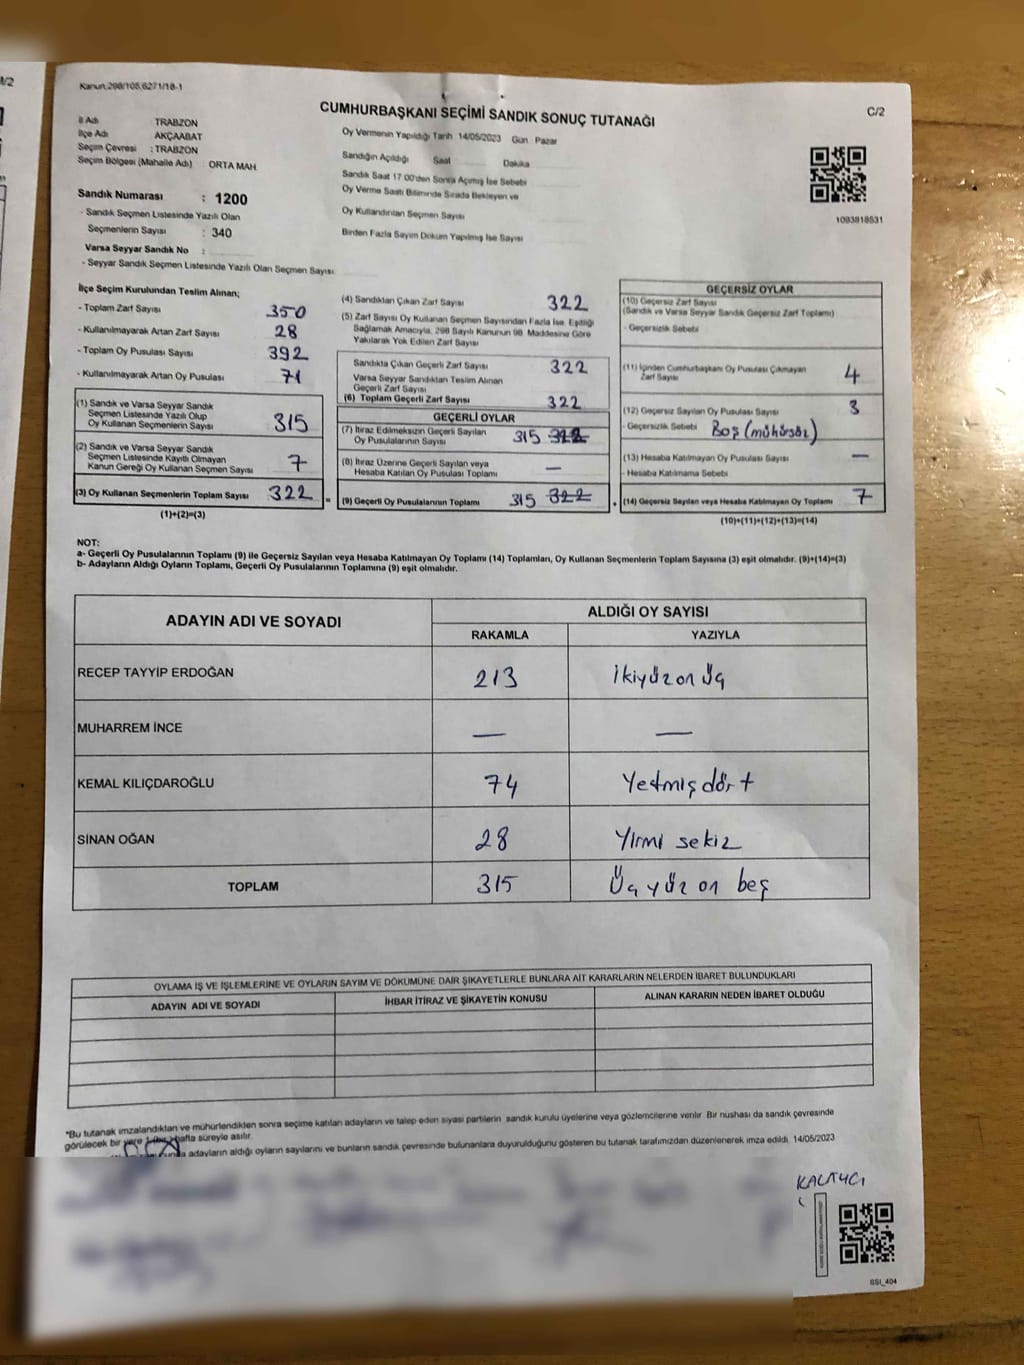 M/2
Kanun,298/105,6271/18-1
C/2
CUMHURBAŞKANI SEÇİMİ SANDIK SONUÇ TUTANAĞI
İl Adı TRABZON
İlçe Adı AKÇAABAT
Seçim Çevresi : TRABZON
Seçim Bölgesi (Mahalle Adı) : ORTA MAH
Sandık Numarası : 1200
- Sandık Seçmen Listesinde Yazılı Olan
Seçmenlerin Sayısı : 340
Varsa Seyyar Sandık No :
- Seyyar Sandık Seçmen Listesinde Yazılı Olan Seçmen Sayısı
Oy Vermenin Yapıldığı Tarih 14/05/2023 Gün Pazar
Sandığın Açıldığı Saat Dakika
Sandık Saat 17:00'den Sonra Açımış İse Sebebi
Oy Verme Saati Bitiminde Sırada Bekleyen ve
Oy Kullandırılan Seçmen Sayısı
Birden Fazla Sayım Döküm Yapılmış İse Sayısı
1093818531
İlçe Seçim Kurulundan Teslim Alınan;
- Toplam Zarf Sayısı 350
- Kullanılmayarak Artan Zarf Sayısı 28
- Toplam Oy Pusulası Sayısı 392
- Kullanılmayarak Artan Oy Pusulası 71
(1) Sandık ve Varsa Seyyar Sandık
Seçmen Listesinde Yazılı Olup
Oy Kullanan Seçmenlerin Sayısı 315
(2) Sandık ve Varsa Seyyar Sandık
Seçmen Listesinde Kayıtlı Olmayan
Kanun Gereği Oy Kullanan Seçmen Sayısı 7
(3) Oy Kullanan Seçmenlerin Toplam Sayısı 322 =
(1)+(2)=(3)
(4) Sandıktan Çıkan Zarf Sayısı 322
(5) Zarf Sayısı Oy Kullanan Seçmen Sayısından Fazla İse Eşitliği
Sağlamak Amacıyla, 298 Sayılı Kanunun 98. Maddesine Göre
Yakılarak Yok Edilen Zarf Sayısı
Sandıkta Çıkan Geçerli Zarf Sayısı 322
Varsa Seyyar Sandıktan Teslim Alınan
Geçerli Zarf Sayısı
(6) Toplam Geçerli Zarf Sayısı 322
GEÇERLİ OYLAR
(7) İtiraz Edilmeksizin Geçerli Sayılan
Oy Pusulalarının Sayısı 315 322
(8) İtiraz Üzerine Geçerli Sayılan veya
Hesaba Katılan Oy Pusulası Toplamı —
(9) Geçerli Oy Pusulalarının Toplamı 315 322 +
GEÇERSİZ OYLAR
(10) Geçersiz Zarf Sayısı
(Sandık ve Varsa Seyyar Sandık Geçersiz Zarf Toplamı)
- Geçersizlik Sebebi
(11) İçinden Cumhurbaşkanı Oy Pusulası Çıkmayan
Zarf Sayısı 4
(12) Geçersiz Sayılan Oy Pusulası Sayısı 3
- Geçersizlik Sebebi Boş (mühürsüz)
(13) Hesaba Katılmayan Oy Pusulası Sayısı —
- Hesaba Katılmama Sebebi
(14) Geçersiz Sayılan veya Hesaba Katılmayan Oy Toplamı 7
(10)+(11)+(12)+(13)=(14)
NOT:
a- Geçerli Oy Pusulalarının Toplamı (9) ile Geçersiz Sayılan veya Hesaba Katılmayan Oy Toplamı (14) Toplamları, Oy Kullanan Seçmenlerin Toplam Sayısına (3) eşit olmalıdır. (9)+(14)=(3)
b- Adayların Aldığı Oyların Toplamı, Geçerli Oy Pusulalarının Toplamına (9) eşit olmalıdır.
ADAYIN ADI VE SOYADI ALDIĞI OY SAYISI
RAKAMLA YAZIYLA
RECEP TAYYİP ERDOĞAN 213 ikiyüz on üç
MUHARREM İNCE — —
KEMAL KILIÇDAROĞLU 74 Yetmiş dört
SİNAN OĞAN 28 Yirmi sekiz
TOPLAM 315 Üç yüz on beş
OYLAMA İŞ VE İŞLEMLERİNE VE OYLARIN SAYIM VE DÖKÜMÜNE DAİR ŞİKAYETLERLE BUNLARA AİT KARARLARIN NELERDEN İBARET BULUNDUKLARI
ADAYIN ADI VE SOYADI İHBAR İTİRAZ VE ŞİKAYETİN KONUSU ALINAN KARARIN NEDEN İBARET OLDUĞU
*Bu tutanak imzalandıktan ve mühürlendikten sonra seçime katılan adayların ve talep eden siyasi partilerin sandık kurulu üyelerine veya gözlemcilerine verilir. Bir nüshası da sandık çevresinde
görülecek bir yere hafta süreyle asılır.
adayların aldığı oyların sayılarını ve bunların sandık çevresinde bulunanlara duyurulduğunu gösteren bu tutanak tarafımızdan düzenlenerek imza edildi. 14/05/2023
KALAYCI
SSI_404